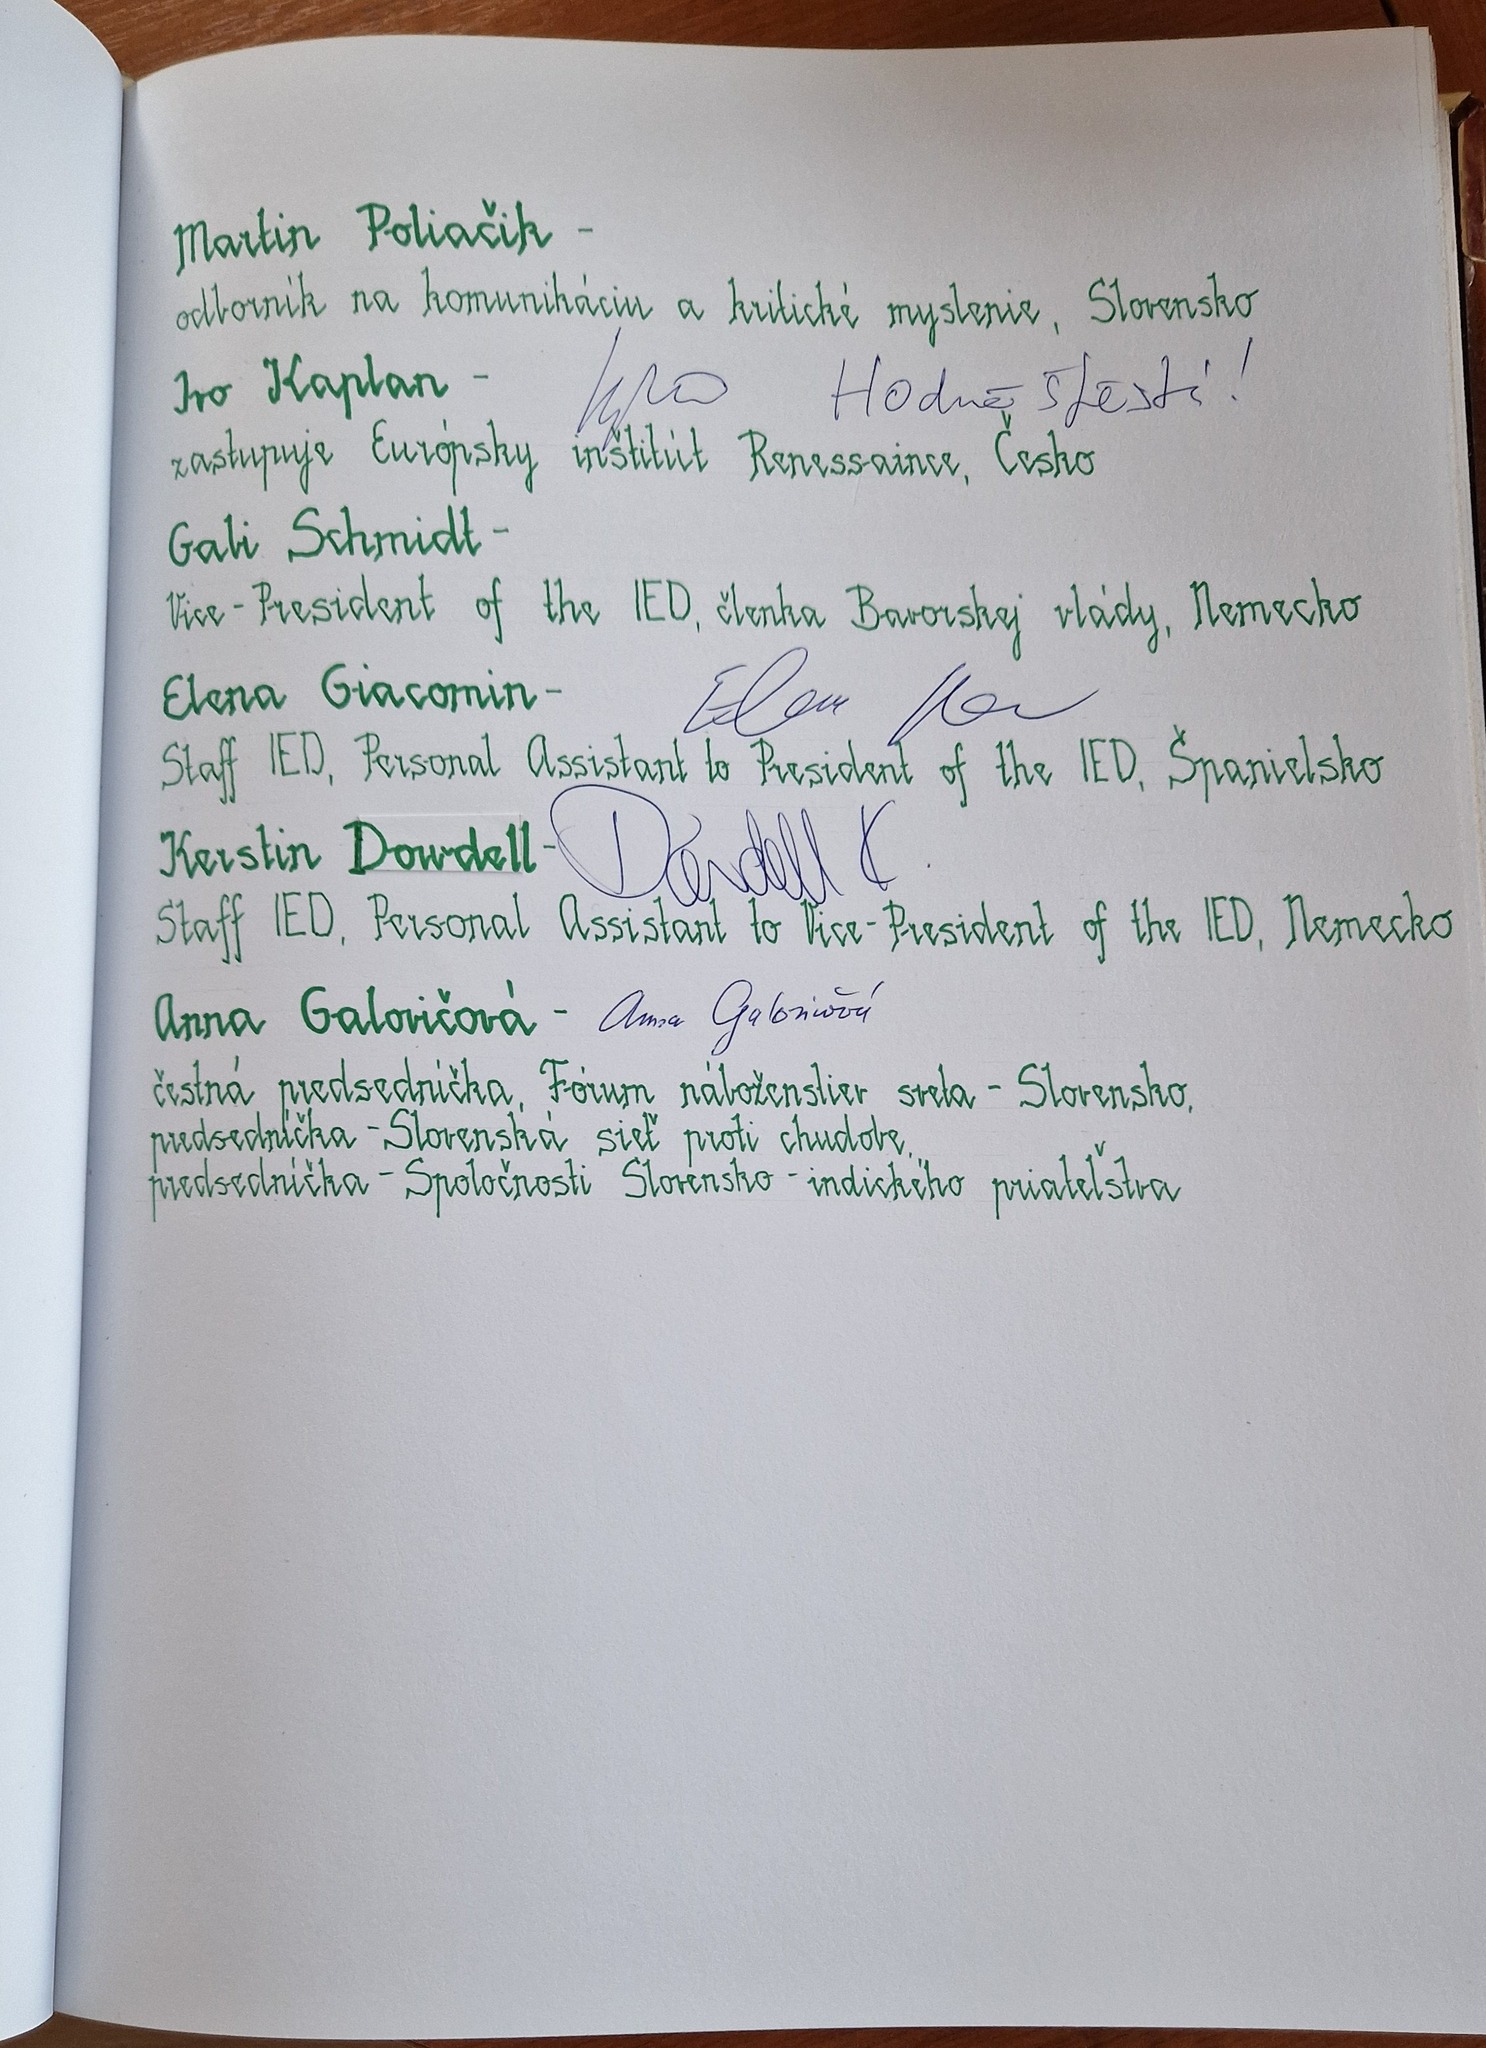 Martin Poliačik -
odborník na komunikáciu a kritické myslenie, Slovensko
Ivo Kaplan - Hodně štěstí!
zastupuje Európsky inštitút Renessaince, Česko
Gabi Schmidt -
Vice-President of the IED, členka Bavorskej vlády, Nemecko
Elena Giacomin - Elena
Staff IED, Personal Assistant to President of the IED, Španielsko
Kerstin Dowdell - Dowdell K.
Staff IED, Personal Assistant to Vice-President of the IED, Nemecko
Anna Galovičová - Anna Galovičová
čestná predsedníčka, Fórum náboženstiev sveta - Slovensko,
predsedníčka - Slovenská sieť proti chudobe,
predsedníčka - Spoločnosti Slovensko - indického priateľstva